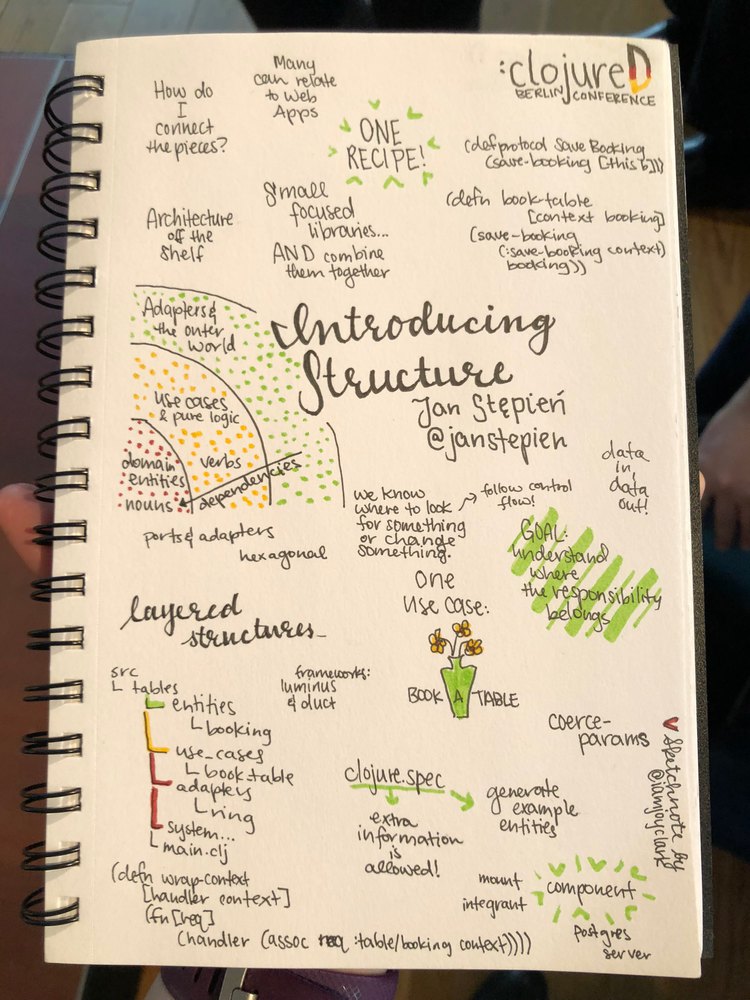 :clojureD
BERLIN CONFERENCE
How do
I
connect
the pieces?
Many
can relate
to web
Apps
ONE
RECIPE!
(defprotocol Save Booking
(save-booking [this b]))
Architecture
off the
shelf
Small
focused
libraries...
AND combine
them together
(defn book-table
[context booking]
(save-booking
(:save-booking context)
booking))
Introducing
Structure
Jan Stępień
@janstepien
Adapters &
the outer
world
use cases
& pure logic
verbs
domain
entities
nouns
dependencies
ports & adapters
hexagonal
we know
where to look
for something
or change
something.
follow control
flow!
data
in,
data
out!
GOAL:
understand
where
the responsibility
belongs
one
use case:
BOOK A TABLE
layered
structures
src
tables
entities
booking
use_cases
book_table
adapters
ring
system...
main.clj
frameworks:
luminus
& duct
clojure.spec
extra
information
is
allowed!
generate
example
entities
coerce-
params
sketchnote by
@iamjoyclark
(defn wrap-context
[handler context]
(fn [req]
(handler (assoc req :table/booking context))))
mount
integrant
component
postgres
server